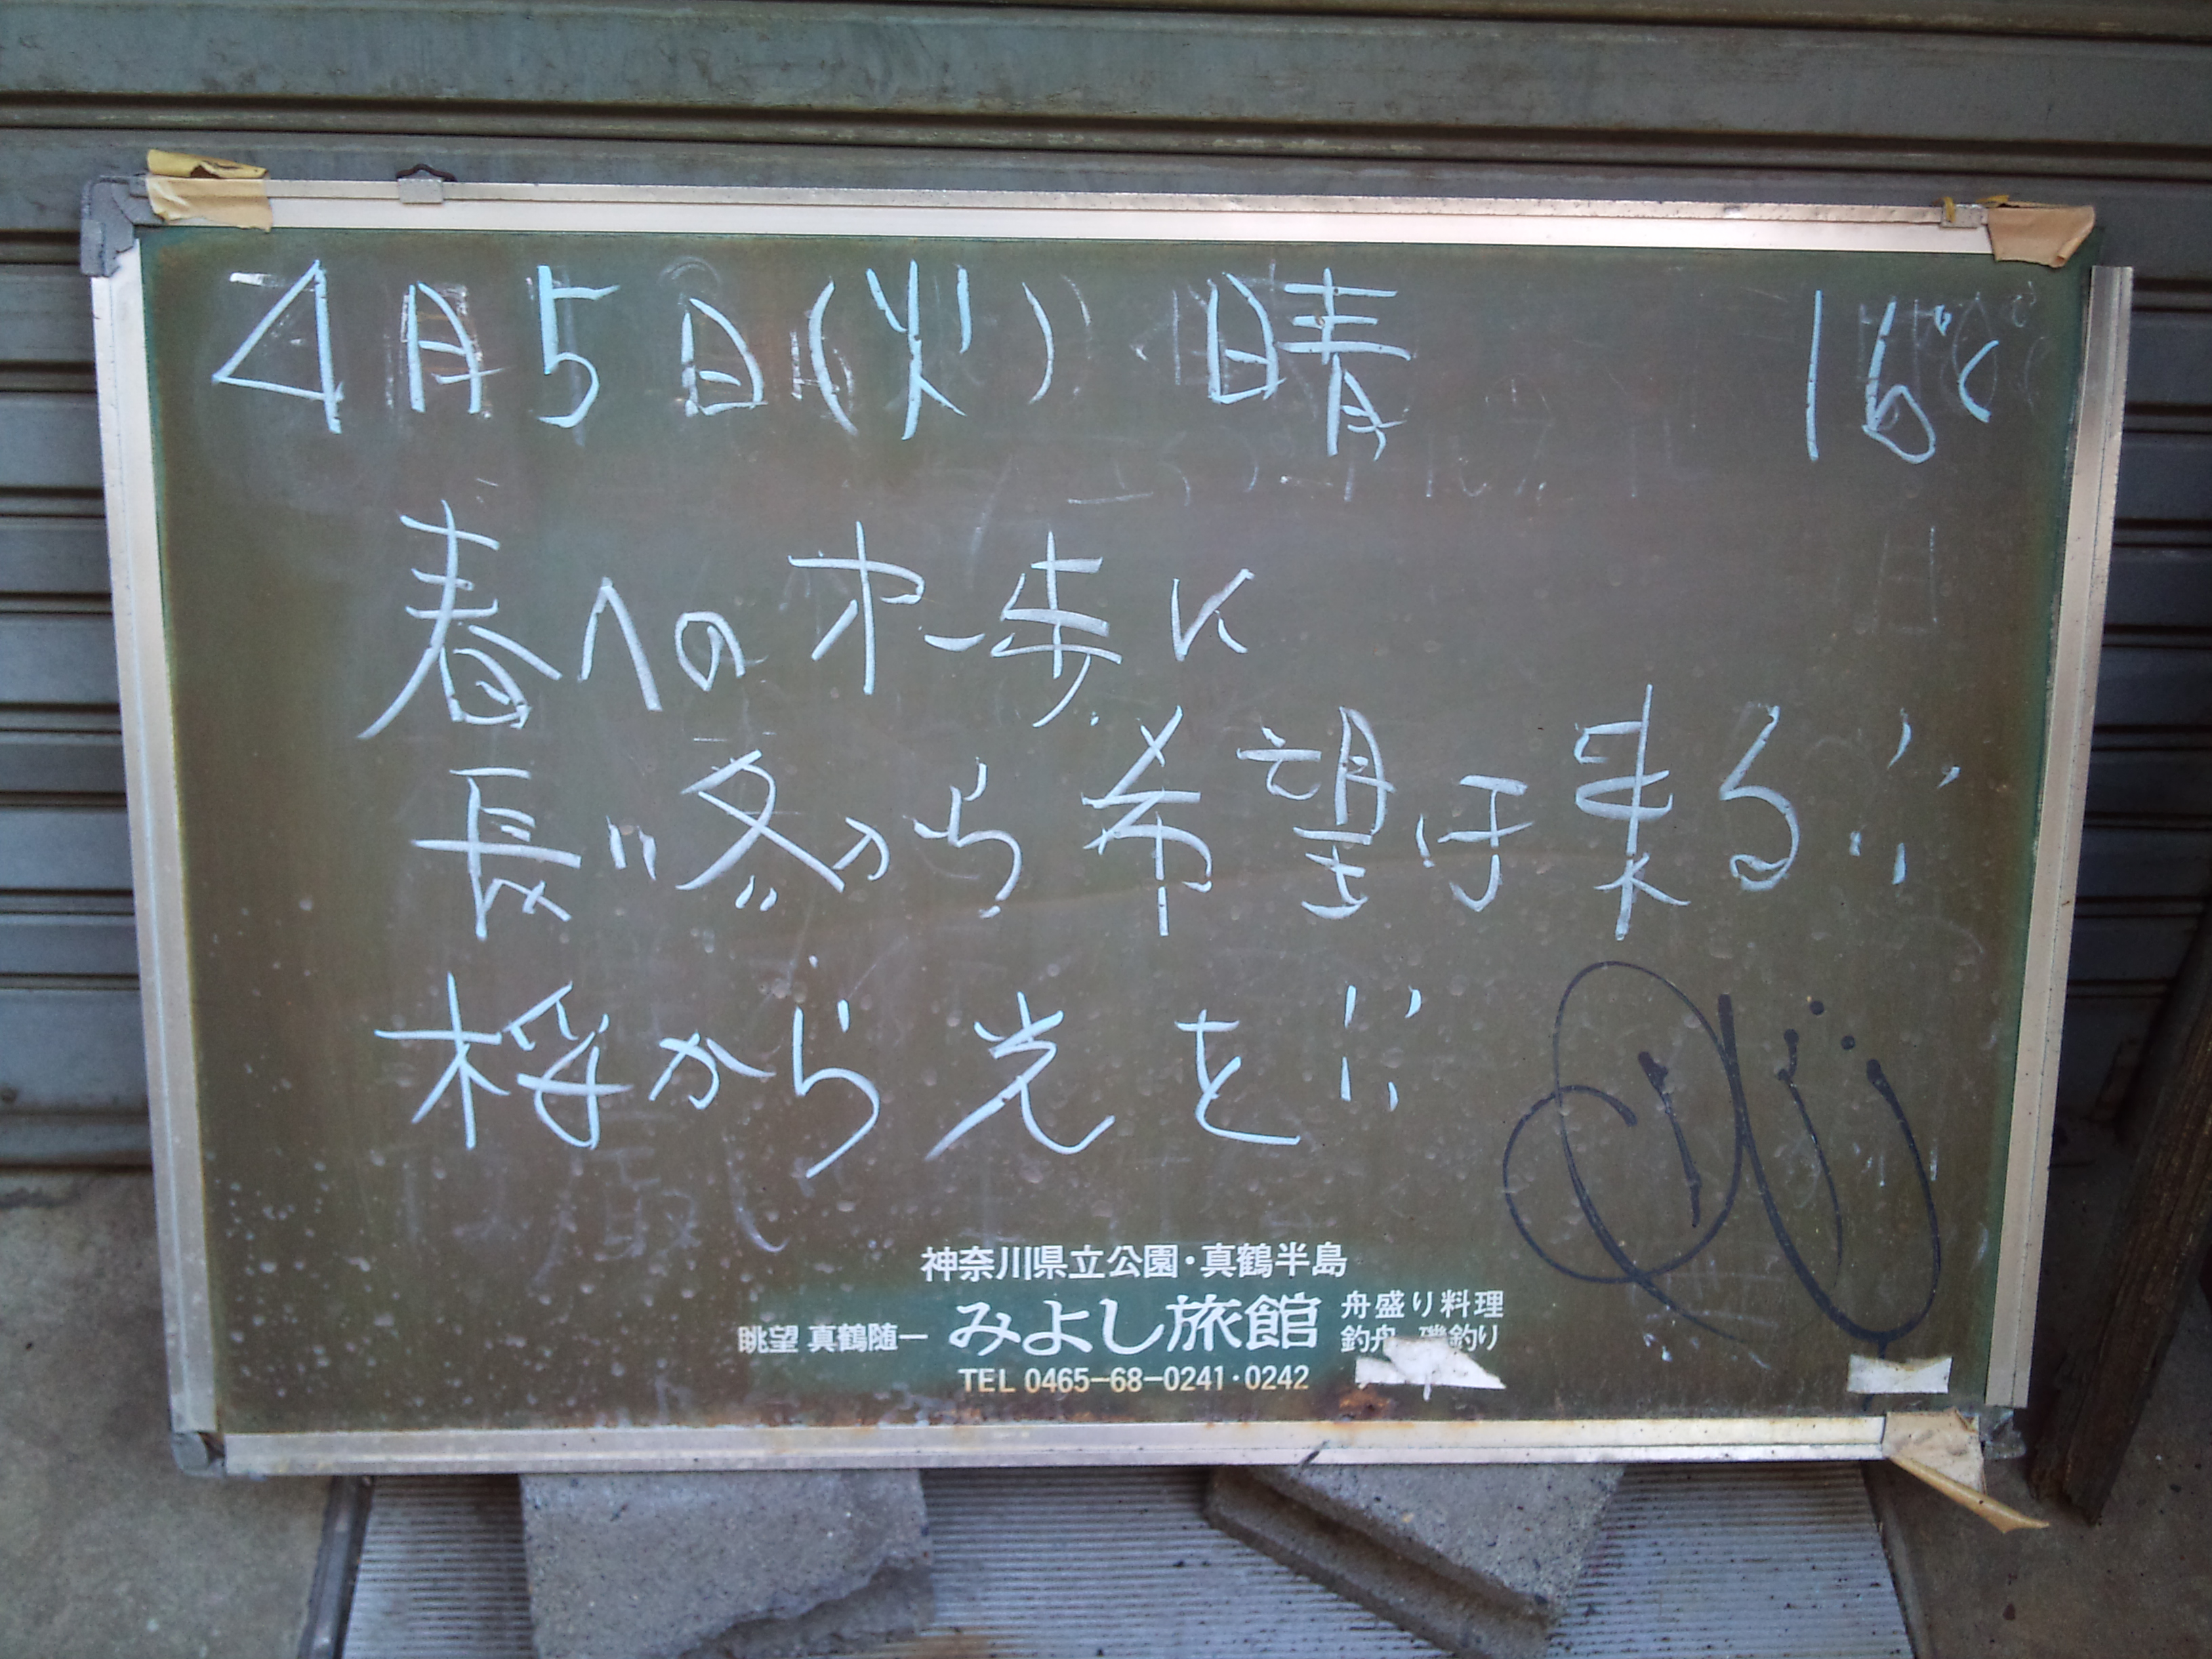 4月5日(火) 晴 16℃
春への才一歩に
長い冬から希望は来る!!
桜から光を!!
神奈川県立公園・真鶴半島
眺望 真鶴随一 みよし旅館 舟盛り料理
釣舟 磯釣り
TEL 0465-68-0241・0242